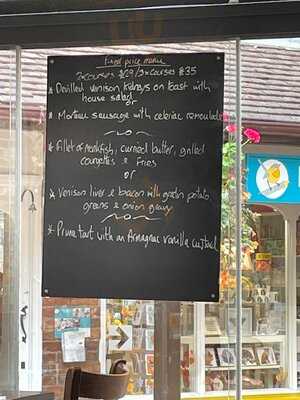 Fixed price menu
2xcourses £29/3xcourses £35
* Devilled venison kidneys on toast with
house salad
or
* Morteau sausage with celeriac remoulade
* Fillet of monkfish, curried butter, grilled
courgettes & fries
or
* Venison liver & bacon with gratin potato,
greens & onion gravy
* Prune tart with an Armagnac vanilla custard